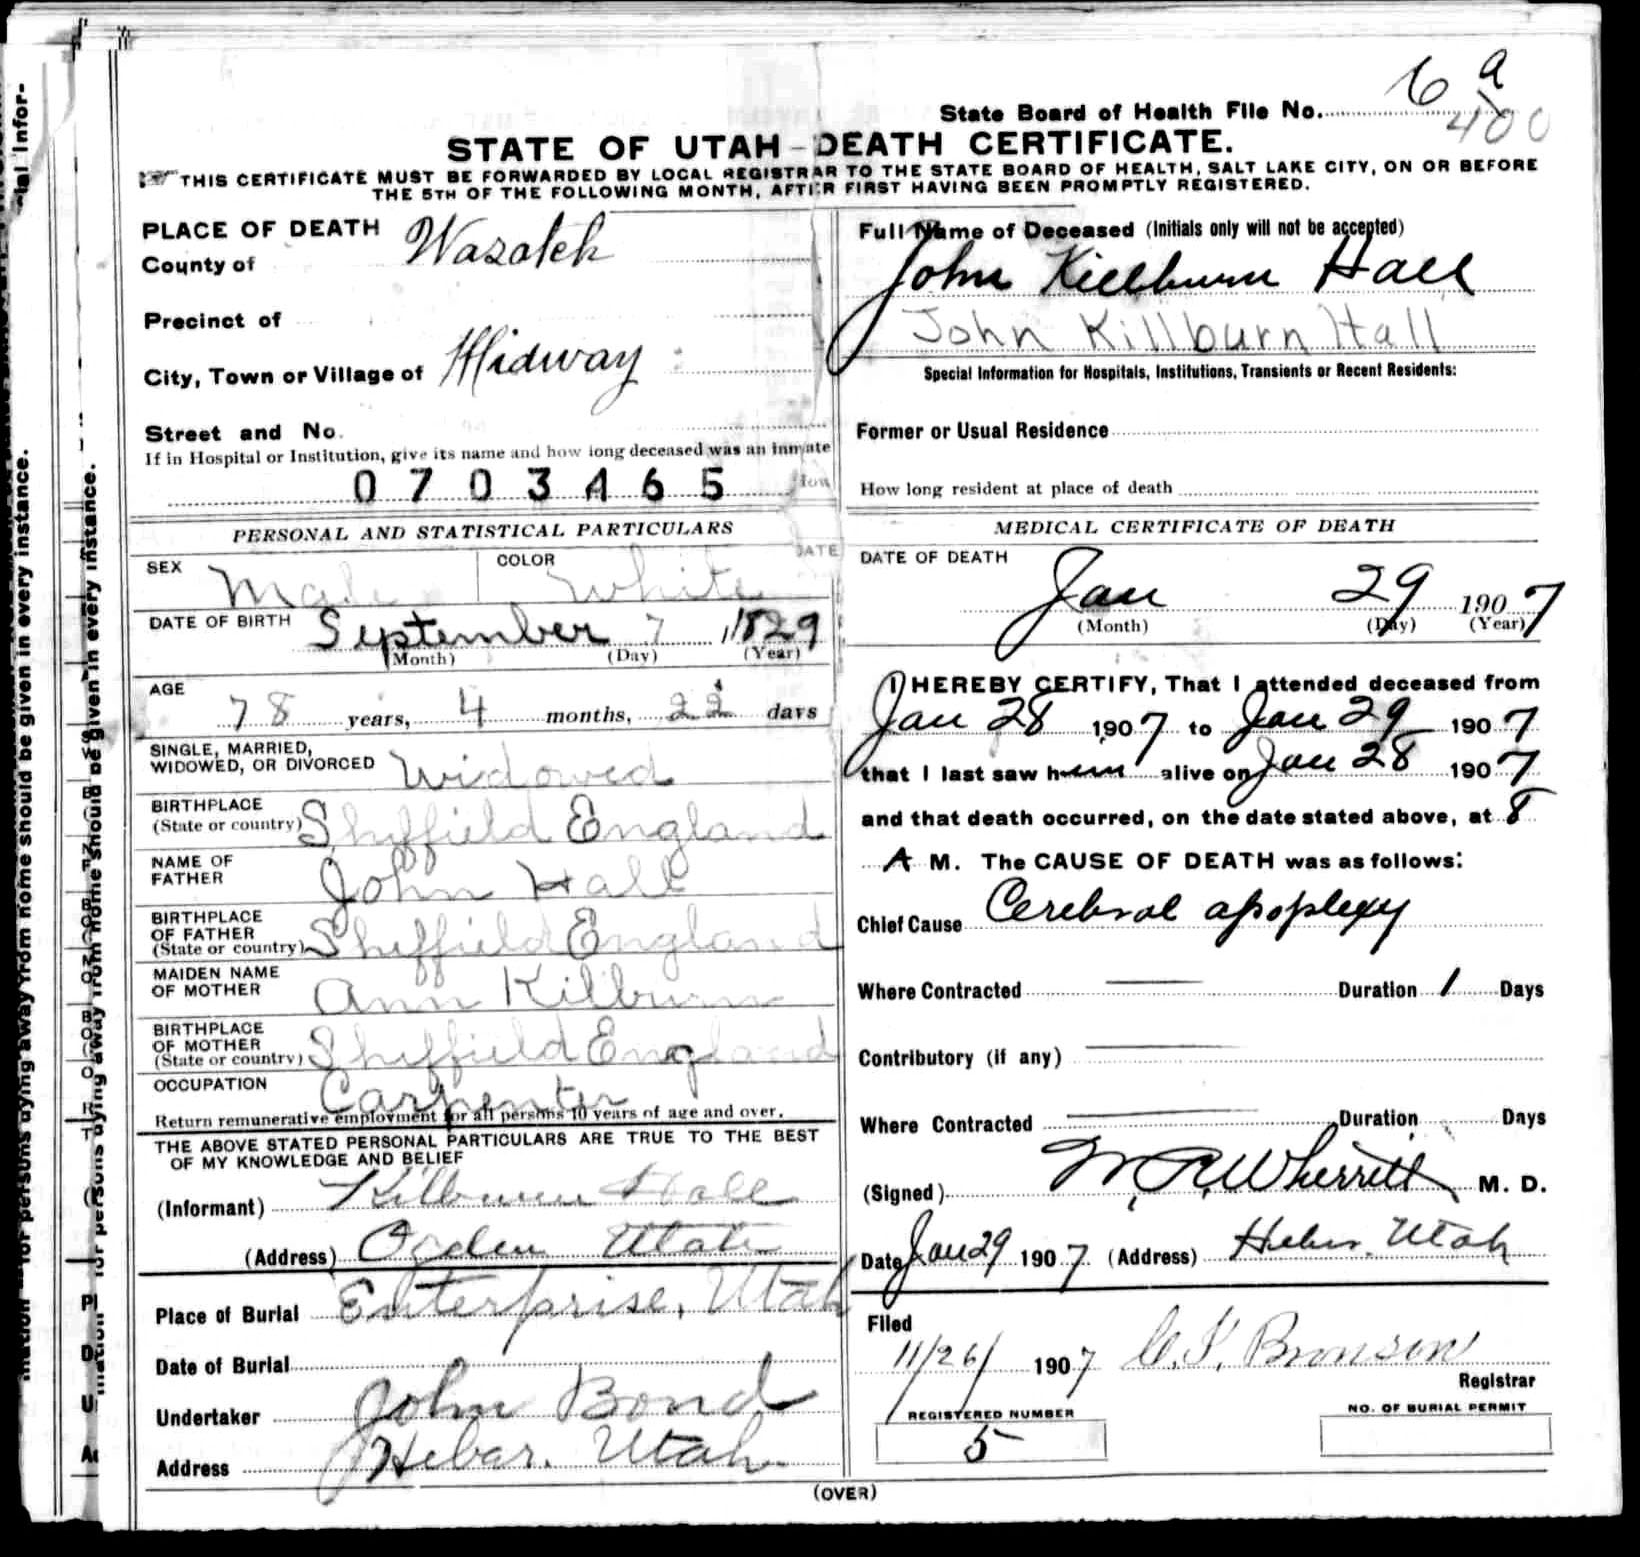 State Board of Health File No. 6 a
400
STATE OF UTAH - DEATH CERTIFICATE.
THIS CERTIFICATE MUST BE FORWARDED BY LOCAL REGISTRAR TO THE STATE BOARD OF HEALTH, SALT LAKE CITY, ON OR BEFORE
THE 5TH OF THE FOLLOWING MONTH, AFTER FIRST HAVING BEEN PROMPTLY REGISTERED.
PLACE OF DEATH
County of Wasatch
Precinct of
City, Town or Village of Midway
Street and No.
If in Hospital or Institution, give its name and how long deceased was an inmate
0703465
Full Name of Deceased (Initials only will not be accepted)
John Killburn Hall
John Killburn Hall
Special Information for Hospitals, Institutions, Transients or Recent Residents:
Former or Usual Residence
How long resident at place of death
PERSONAL AND STATISTICAL PARTICULARS
SEX Male COLOR White
DATE OF BIRTH September 7 1829
(Month) (Day) (Year)
AGE 78 years, 4 months, 22 days
SINGLE, MARRIED,
WIDOWED, OR DIVORCED Widowed
BIRTHPLACE
(State or country) Sheffield England
NAME OF
FATHER John Hall
BIRTHPLACE
OF FATHER
(State or country) Sheffield England
MAIDEN NAME
OF MOTHER Ann Kilburn
BIRTHPLACE
OF MOTHER
(State or country) Sheffield England
OCCUPATION Carpenter
Return remunerative employment for all persons 10 years of age and over.
THE ABOVE STATED PERSONAL PARTICULARS ARE TRUE TO THE BEST
OF MY KNOWLEDGE AND BELIEF
(Informant) Kilburn Hall
(Address) Ogden Utah
Place of Burial Enterprise, Utah
Date of Burial
Undertaker John Bond
Address Heber. Utah
MEDICAL CERTIFICATE OF DEATH
DATE OF DEATH
Jan 29 1907
(Month) (Day) (Year)
I HEREBY CERTIFY, That I attended deceased from
Jan 28 1907 to Jan 29 1907
that I last saw him alive on Jan 28 1907
and that death occurred, on the date stated above, at 8
A M. The CAUSE OF DEATH was as follows:
Chief Cause Cerebral apoplexy
Where Contracted Duration 1 Days
Contributory (if any)
Where Contracted Duration Days
(Signed) W. R. Wherritt M. D.
Date Jan 29 1907 (Address) Heber. Utah
Filed
11/26/ 1907 C. I. Bronson
Registrar
REGISTERED NUMBER
5
NO. OF BURIAL PERMIT
(OVER)
mation for persons dying away from home should be given in every instance.